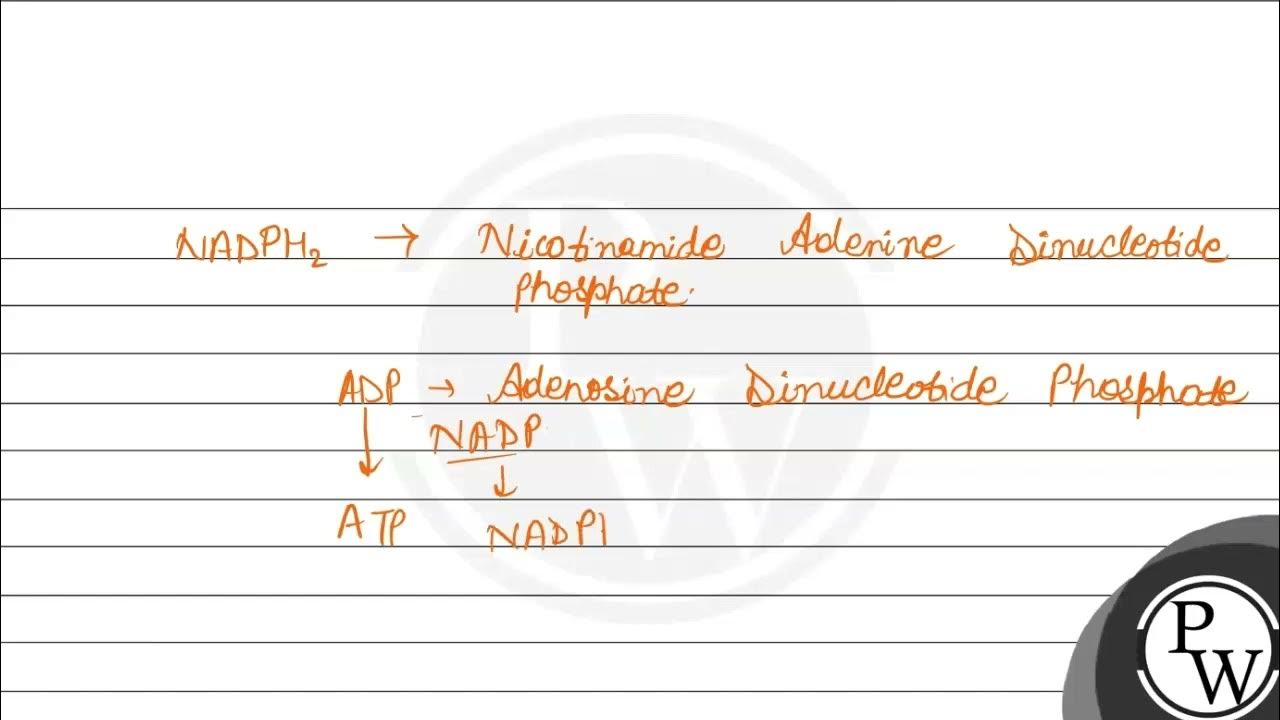 NADPH₂ → Nicotinamide Adenine Dinucleotide
Phosphate.
ADP → Adenosine Dinucleotide Phosphate
NADP
ATP NADPI
P
W